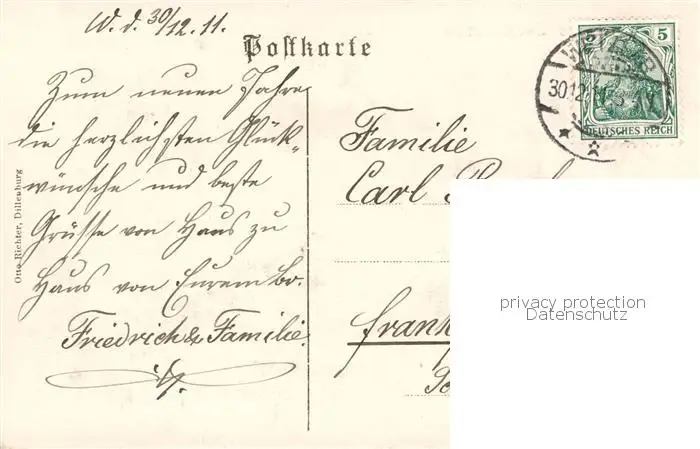 W. d. 30/12.11.
Postkarte
Zum neuen Jahre
die herzlichsten Glück-
wünsche und beste
Grüsse von Haus zu
Haus von Eurem br.
Friedrich & Familie.
Familie
Carl
Frank
Otto Richter, Dillenburg
5 5
30.12.11
DEUTSCHES REICH
privacy protection
Datenschutz